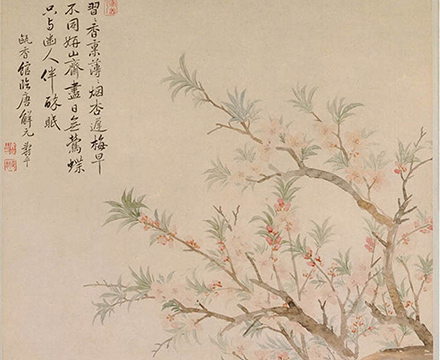 習〻香熏薄〻烟杏遲梅早
不同妍山齋盡日無鶯蝶
只与幽人伴酔眠
甌香館臨唐解元 壽平